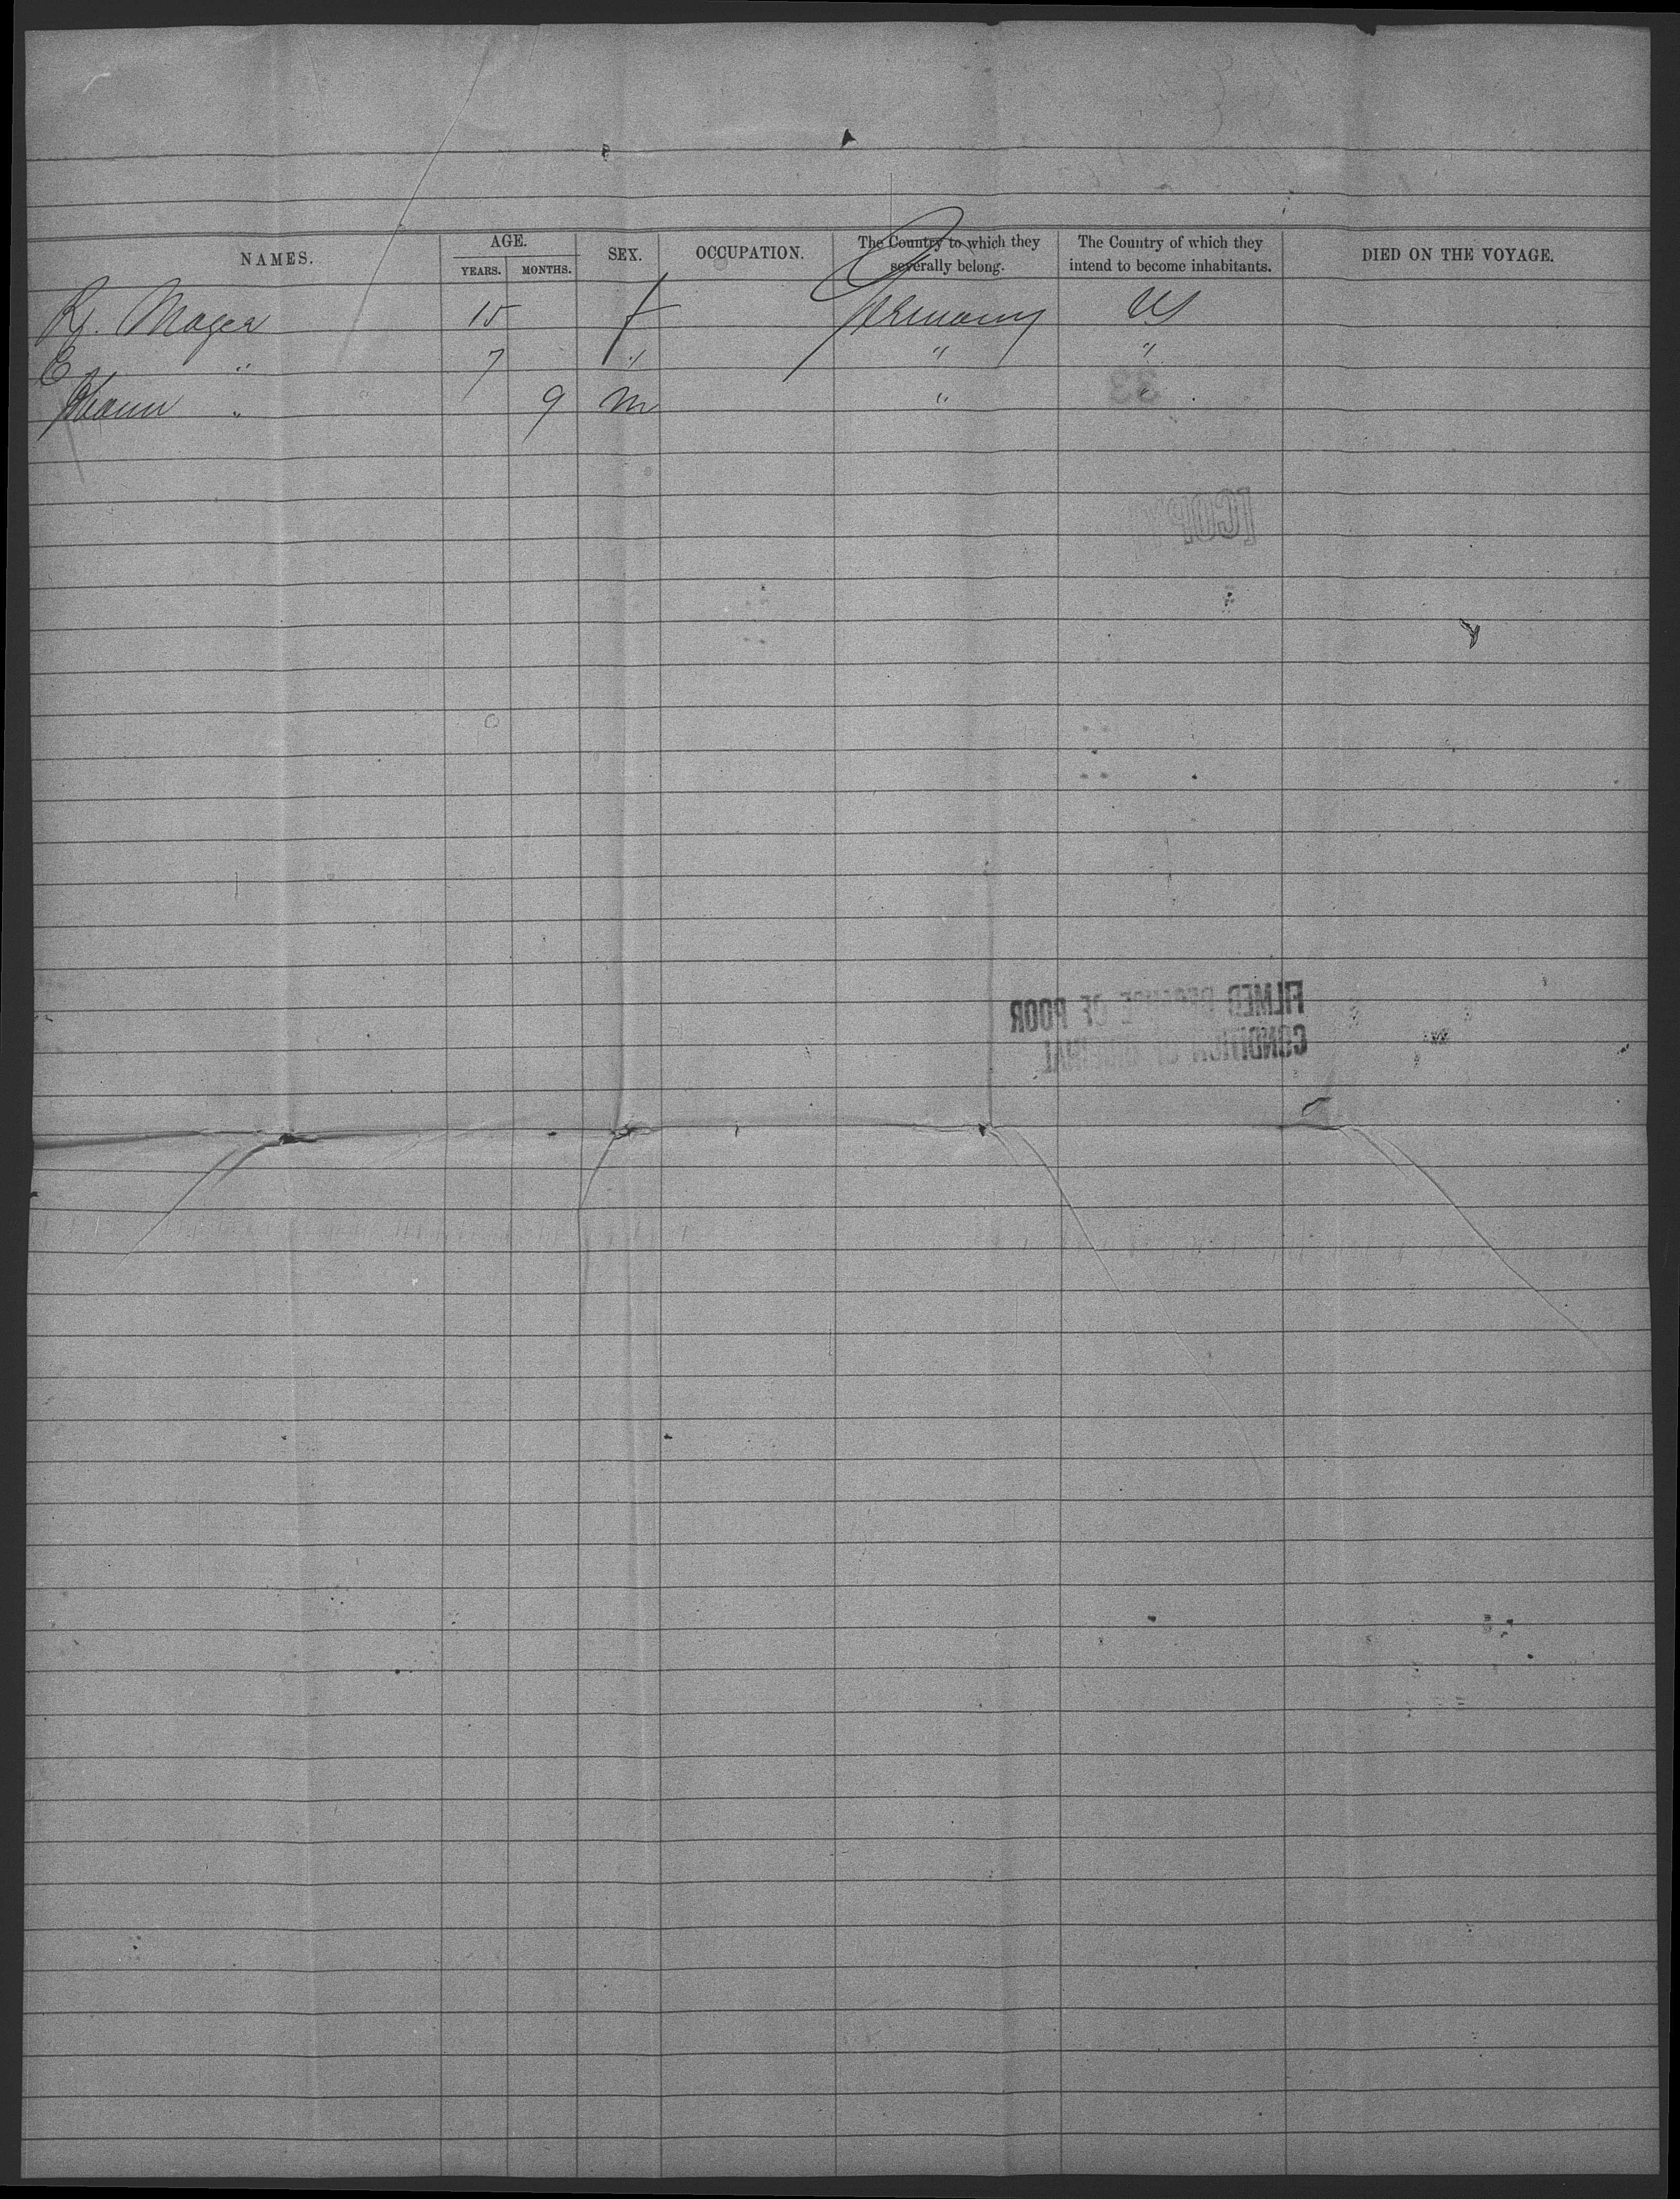 NAMES. AGE. SEX. OCCUPATION. The Country to which they severally belong. The Country of which they intend to become inhabitants. DIED ON THE VOYAGE.
YEARS. MONTHS.
Mager 15 f Germany US
E " 7 " " "
Johann " 9 m " "
33
[COPY]
FILMED BECAUSE OF POOR
CONDITION OF ORIGINAL